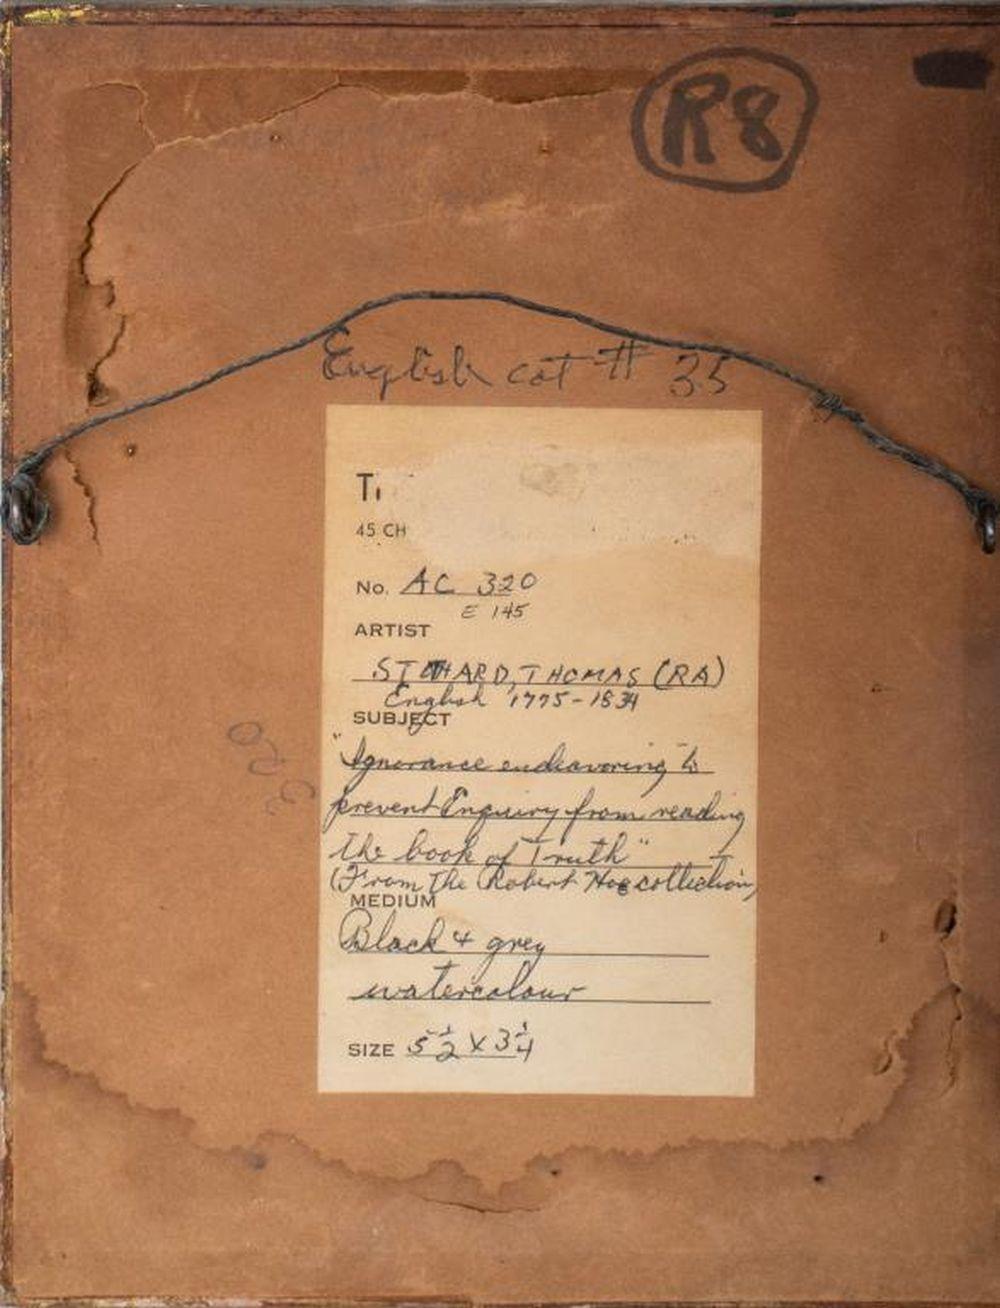 R8
English cat # 35
45 CH
No. AC 320
E 145
ARTIST
STOTHARD, THOMAS (RA)
English 1775-1834
SUBJECT
"Ignorance endeavoring to
prevent Enquiry from reading
the book of Truth"
(From the Robert Hoe collection)
MEDIUM
Black & grey
watercolour
SIZE 5 1/2 X 3 1/4